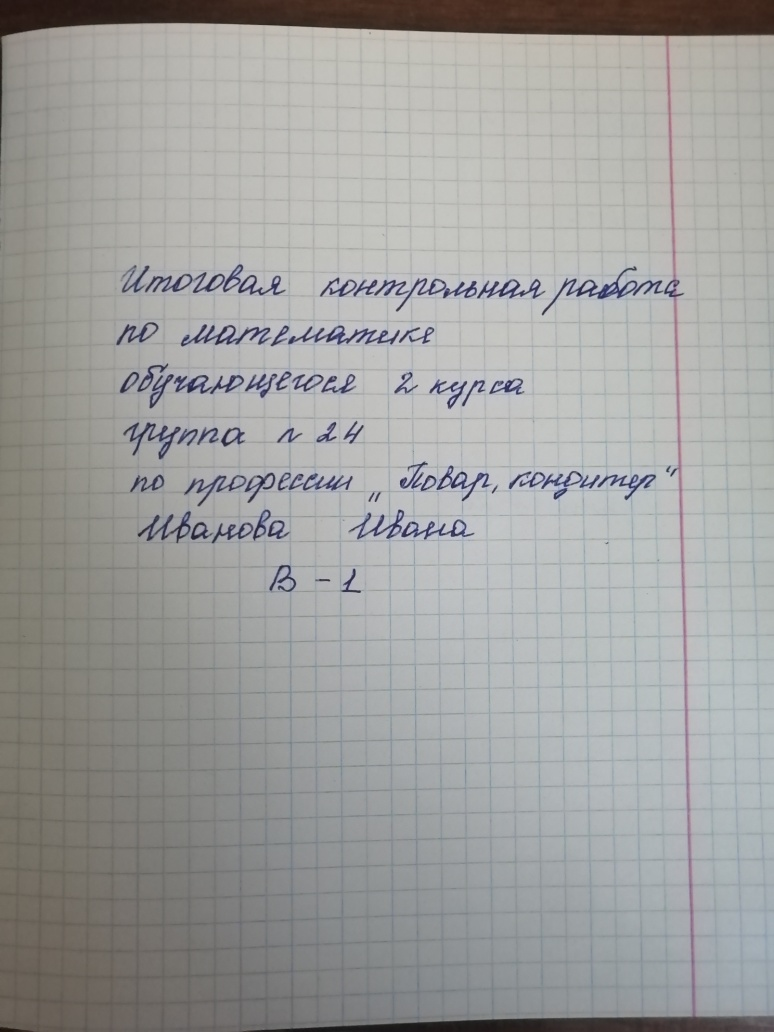 Итоговая контрольная работа
по математике
обучающегося 2 курса
группа n 24
по профессии „Повар, кондитер“
Иванова Ивана
В – 1